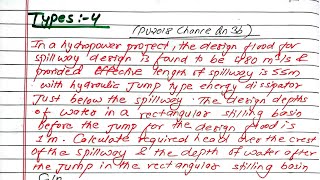 Types :- 4
(PU2018 Chance Qn 3b)
In a hydropower project, the design flood for
spillway design is found to be 480 m³/s &
provided Effective length of spillway is 55m
with hydraulic Jump type energy dissipator
Just below the spillway. The design depths
of water in a rectangular stilling basin
before the jump for the design flood is
m. Calculate required head over the crest
of the spillway & the depth of water after
the jump in the rectangular stilling basin